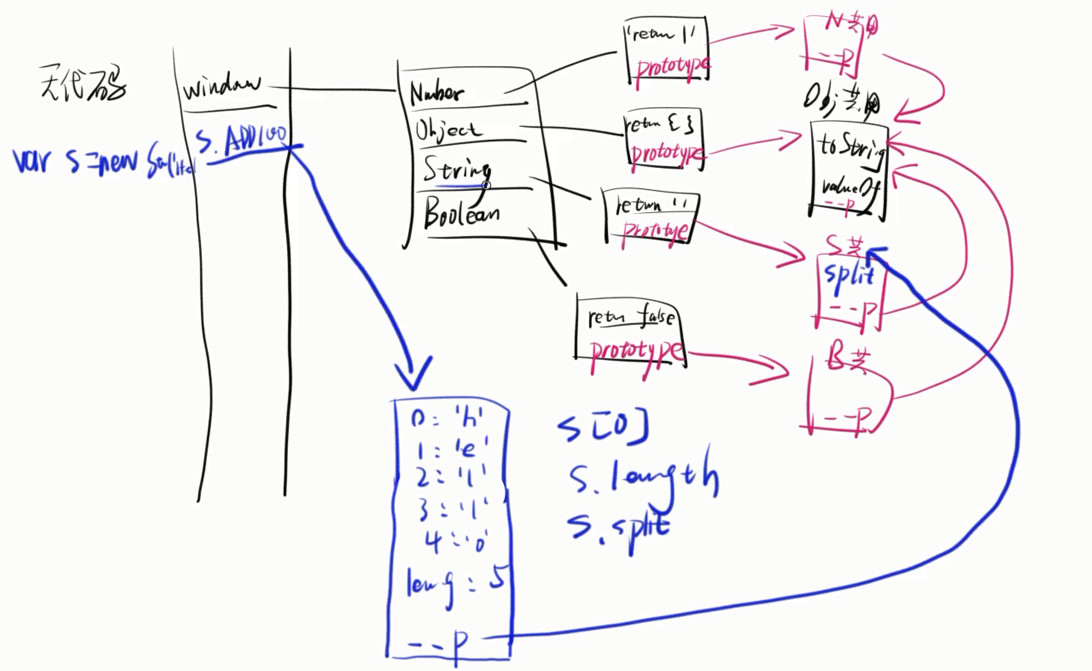 无代码
window
s. ADD100
var s=new
Number
Object
String
Boolean
'return 1'
prototype
return { }
prototype
return ''
prototye
retn false
prototype
N共用
--P
Obj共用
toString
valueOf
--P
S共
split
--P
B共
--P
0: 'h'
1: 'e'
2: 'l'
3: 'l'
4: 'o'
leng: 5
--P
s[0]
s.length
s.split